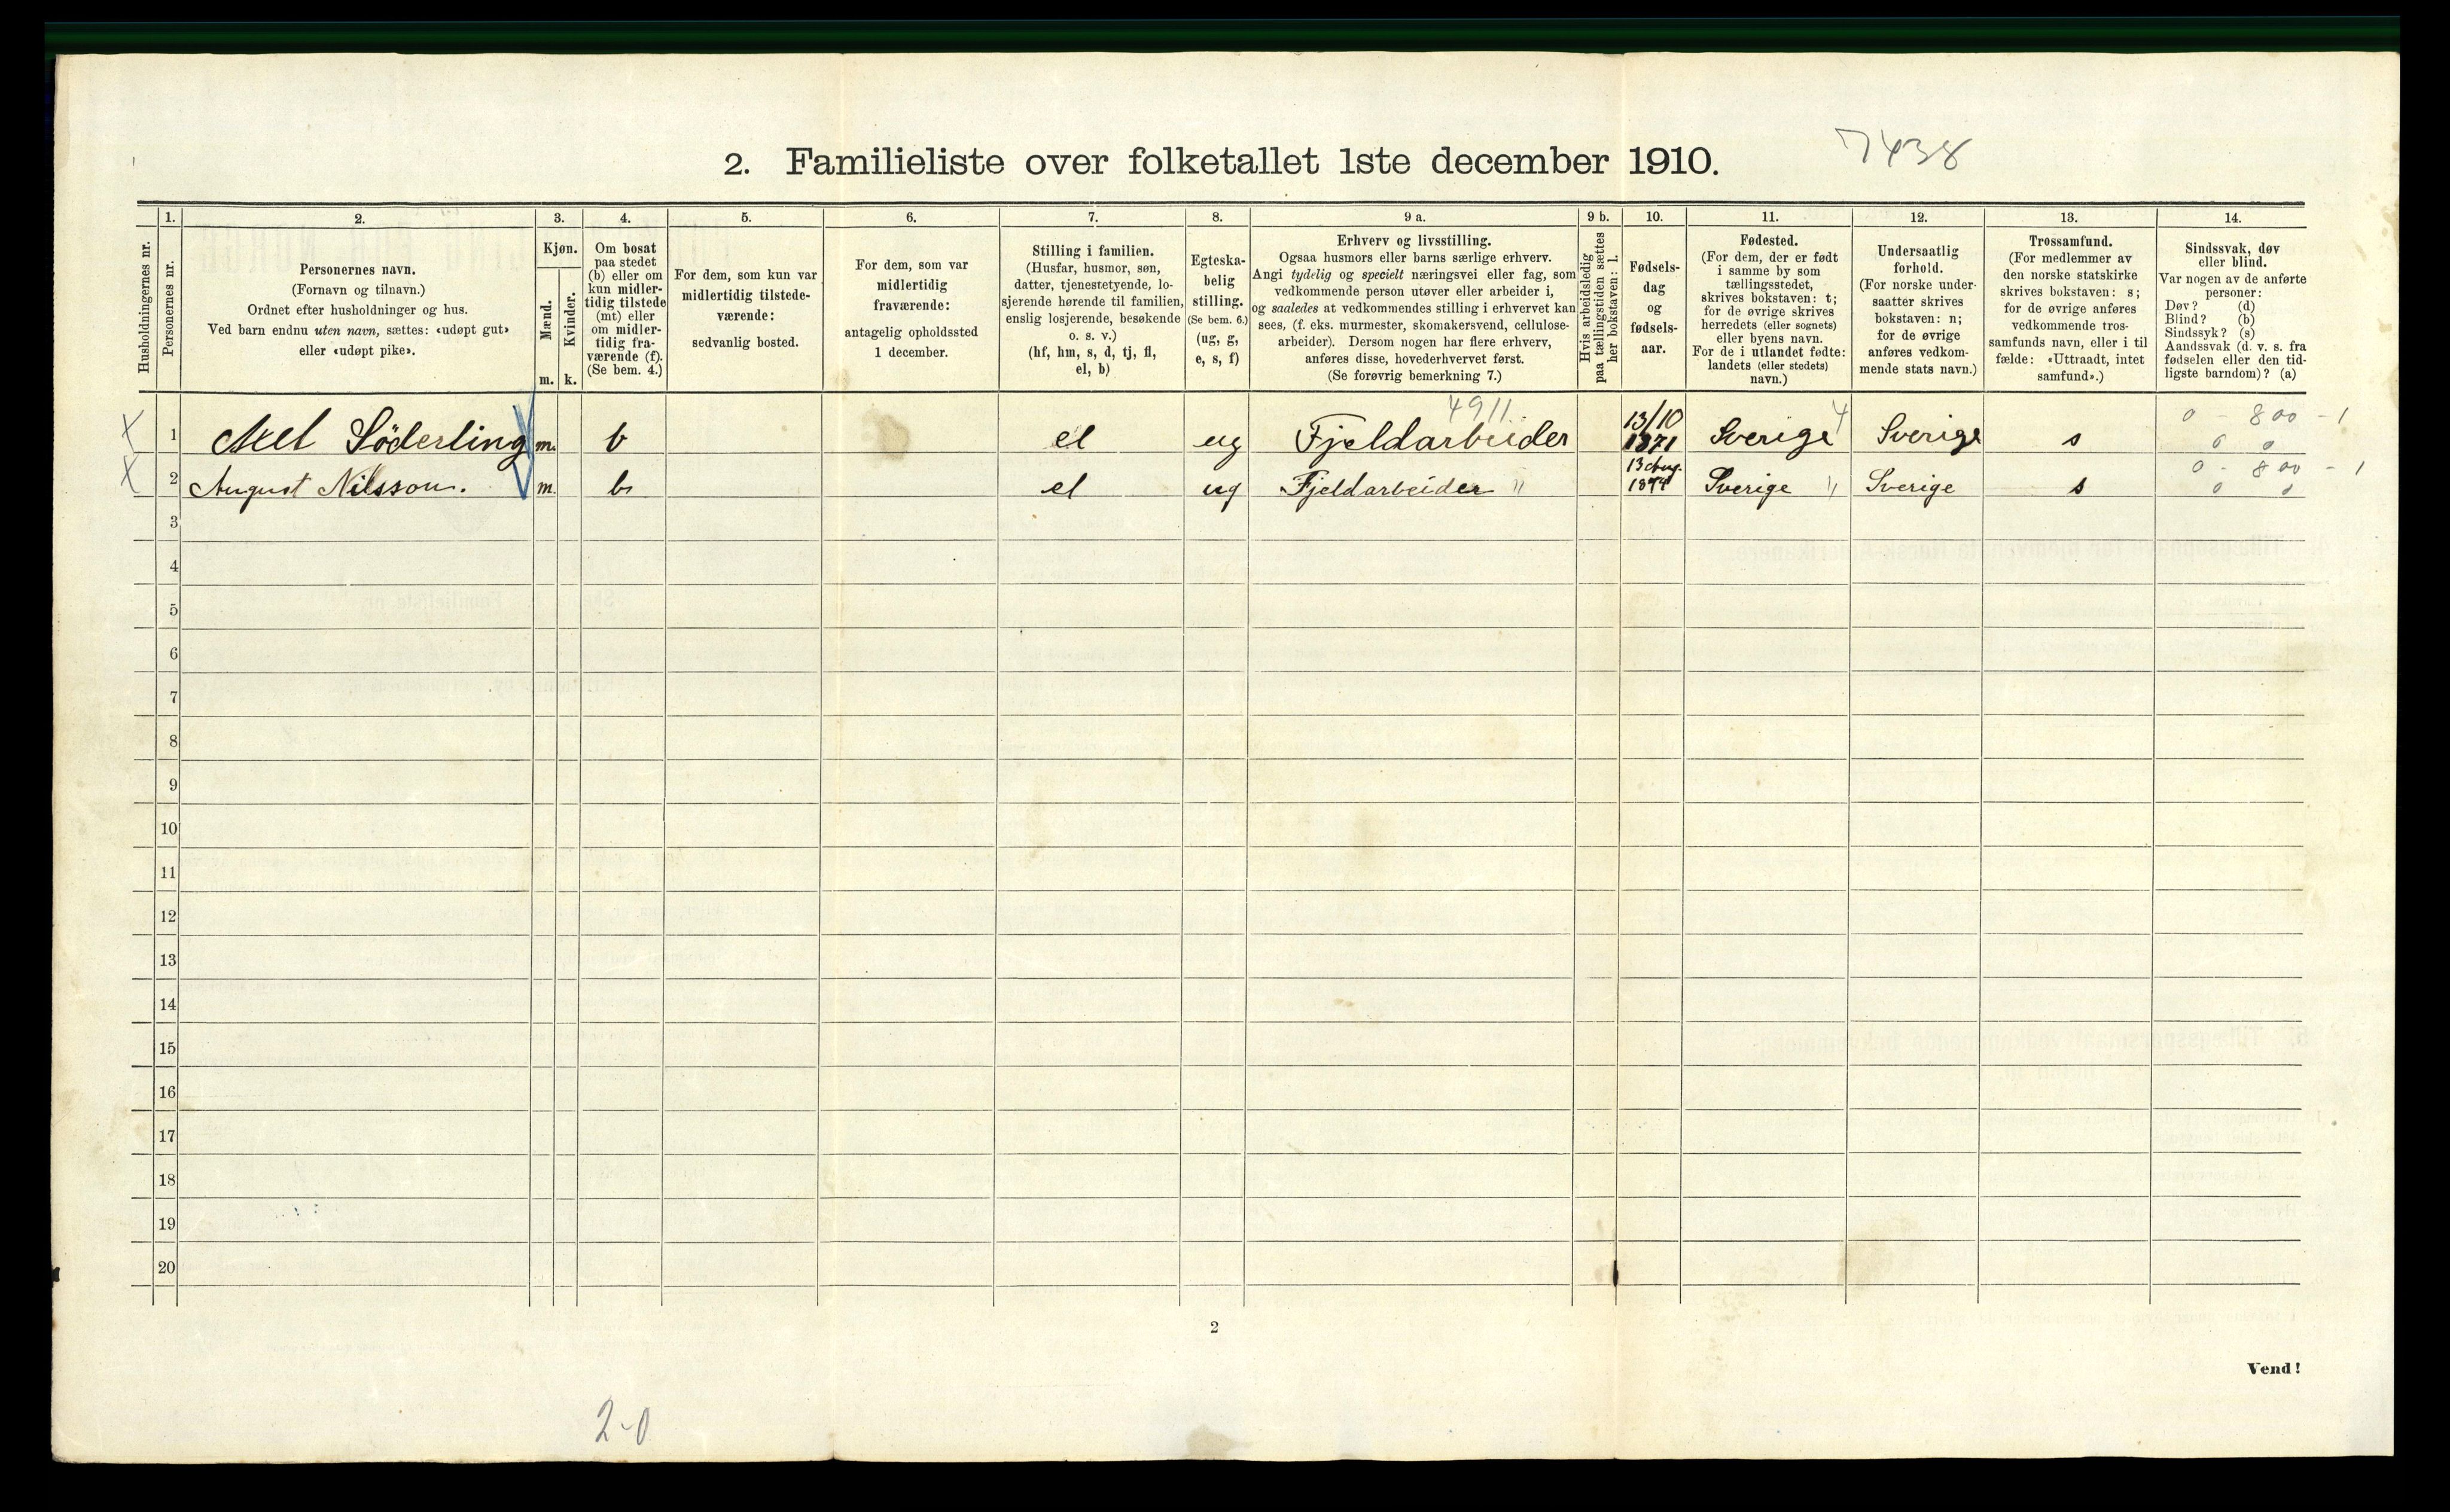 2. Familieliste over folketallet 1ste december 1910.
7438
1. 2. 3. 4. 5. 6. 7. 8. 9 a. 9 b. 10. 11. 12. 13. 14.
Husholdningernes nr.
Personernes nr.
Personernes navn.
(Fornavn og tilnavn.)
Ordnet efter husholdninger og hus.
Ved barn endnu uten navn, sættes: «udøpt gut»
eller «udøpt pike».
Kjøn.
Mænd.
Kvinder.
m. k.
Om bosat
paa stedet
(b) eller om
kun midler-
tidig tilstede
(mt) eller
om midler-
tidig fra-
værende (f).
(Se bem. 4.)
For dem, som kun var
midlertidig tilstede-
værende:
sedvanlig bosted.
For dem, som var
midlertidig
fraværende:
antagelig opholdssted
1 december.
Stilling i familien.
(Husfar, husmor, søn,
datter, tjenestetyende, lo-
sjerende hørende til familien,
enslig losjerende, besøkende
o. s. v.)
(hf, hm, s, d, tj, fl,
el, b)
Egteska-
belig
stilling.
(Se bem. 6.)
(ug, g,
e, s, f)
Erhverv og livsstilling.
Ogsaa husmors eller barns særlige erhverv.
Angi tydelig og specielt næringsvei eller fag, som
vedkommende person utøver eller arbeider i,
og saaledes at vedkommendes stilling i erhvervet kan
sees, (f. eks. murmester, skomakersvend, cellulose-
arbeider). Dersom nogen har flere erhverv,
anføres disse, hovederhvervet først.
(Se forøvrig bemerkning 7.)
Hvis arbeidsledig
paa tællingstiden sættes
her bokstaven: l.
Fødsels-
dag
og
fødsels-
aar.
Fødested.
(For dem, der er født
i samme by som
tællingsstedet,
skrives bokstaven: t;
for de øvrige skrives
herredets (eller sognets)
eller byens navn.
For de i utlandet fødte:
landets (eller stedets)
navn.)
Undersaatlig
forhold.
(For norske under-
saatter skrives
bokstaven: n;
for de øvrige
anføres vedkom-
mende stats navn.)
Trossamfund.
(For medlemmer av
den norske statskirke
skrives bokstaven: s;
for de øvrige anføres
vedkommende tros-
samfunds navn, eller i til
fælde: «Uttraadt, intet
samfund».)
Sindssvak, døv
eller blind.
Var nogen av de anførte
personer:
Døv? (d)
Blind? (b)
Sindssyk? (s)
Aandssvak (d. v. s. fra
fødselen eller den tid-
ligste barndom)? (a)
4911 13/10 4 0 - 800 - 1
X 1 Axel Söderling m. b el ug Fjeldarbeider 1871 Sverige Sverige s 0 0
13 Aug. 0 - 800 - 1
X 2 August Nilsson. m. b el ug Fjeldarbeider " 1874 Sverige " Sverige s 0 0
3
4
5
6
7
8
9
10
11
12
13
14
15
16
17
18
19
20
2
Vend!
2-0